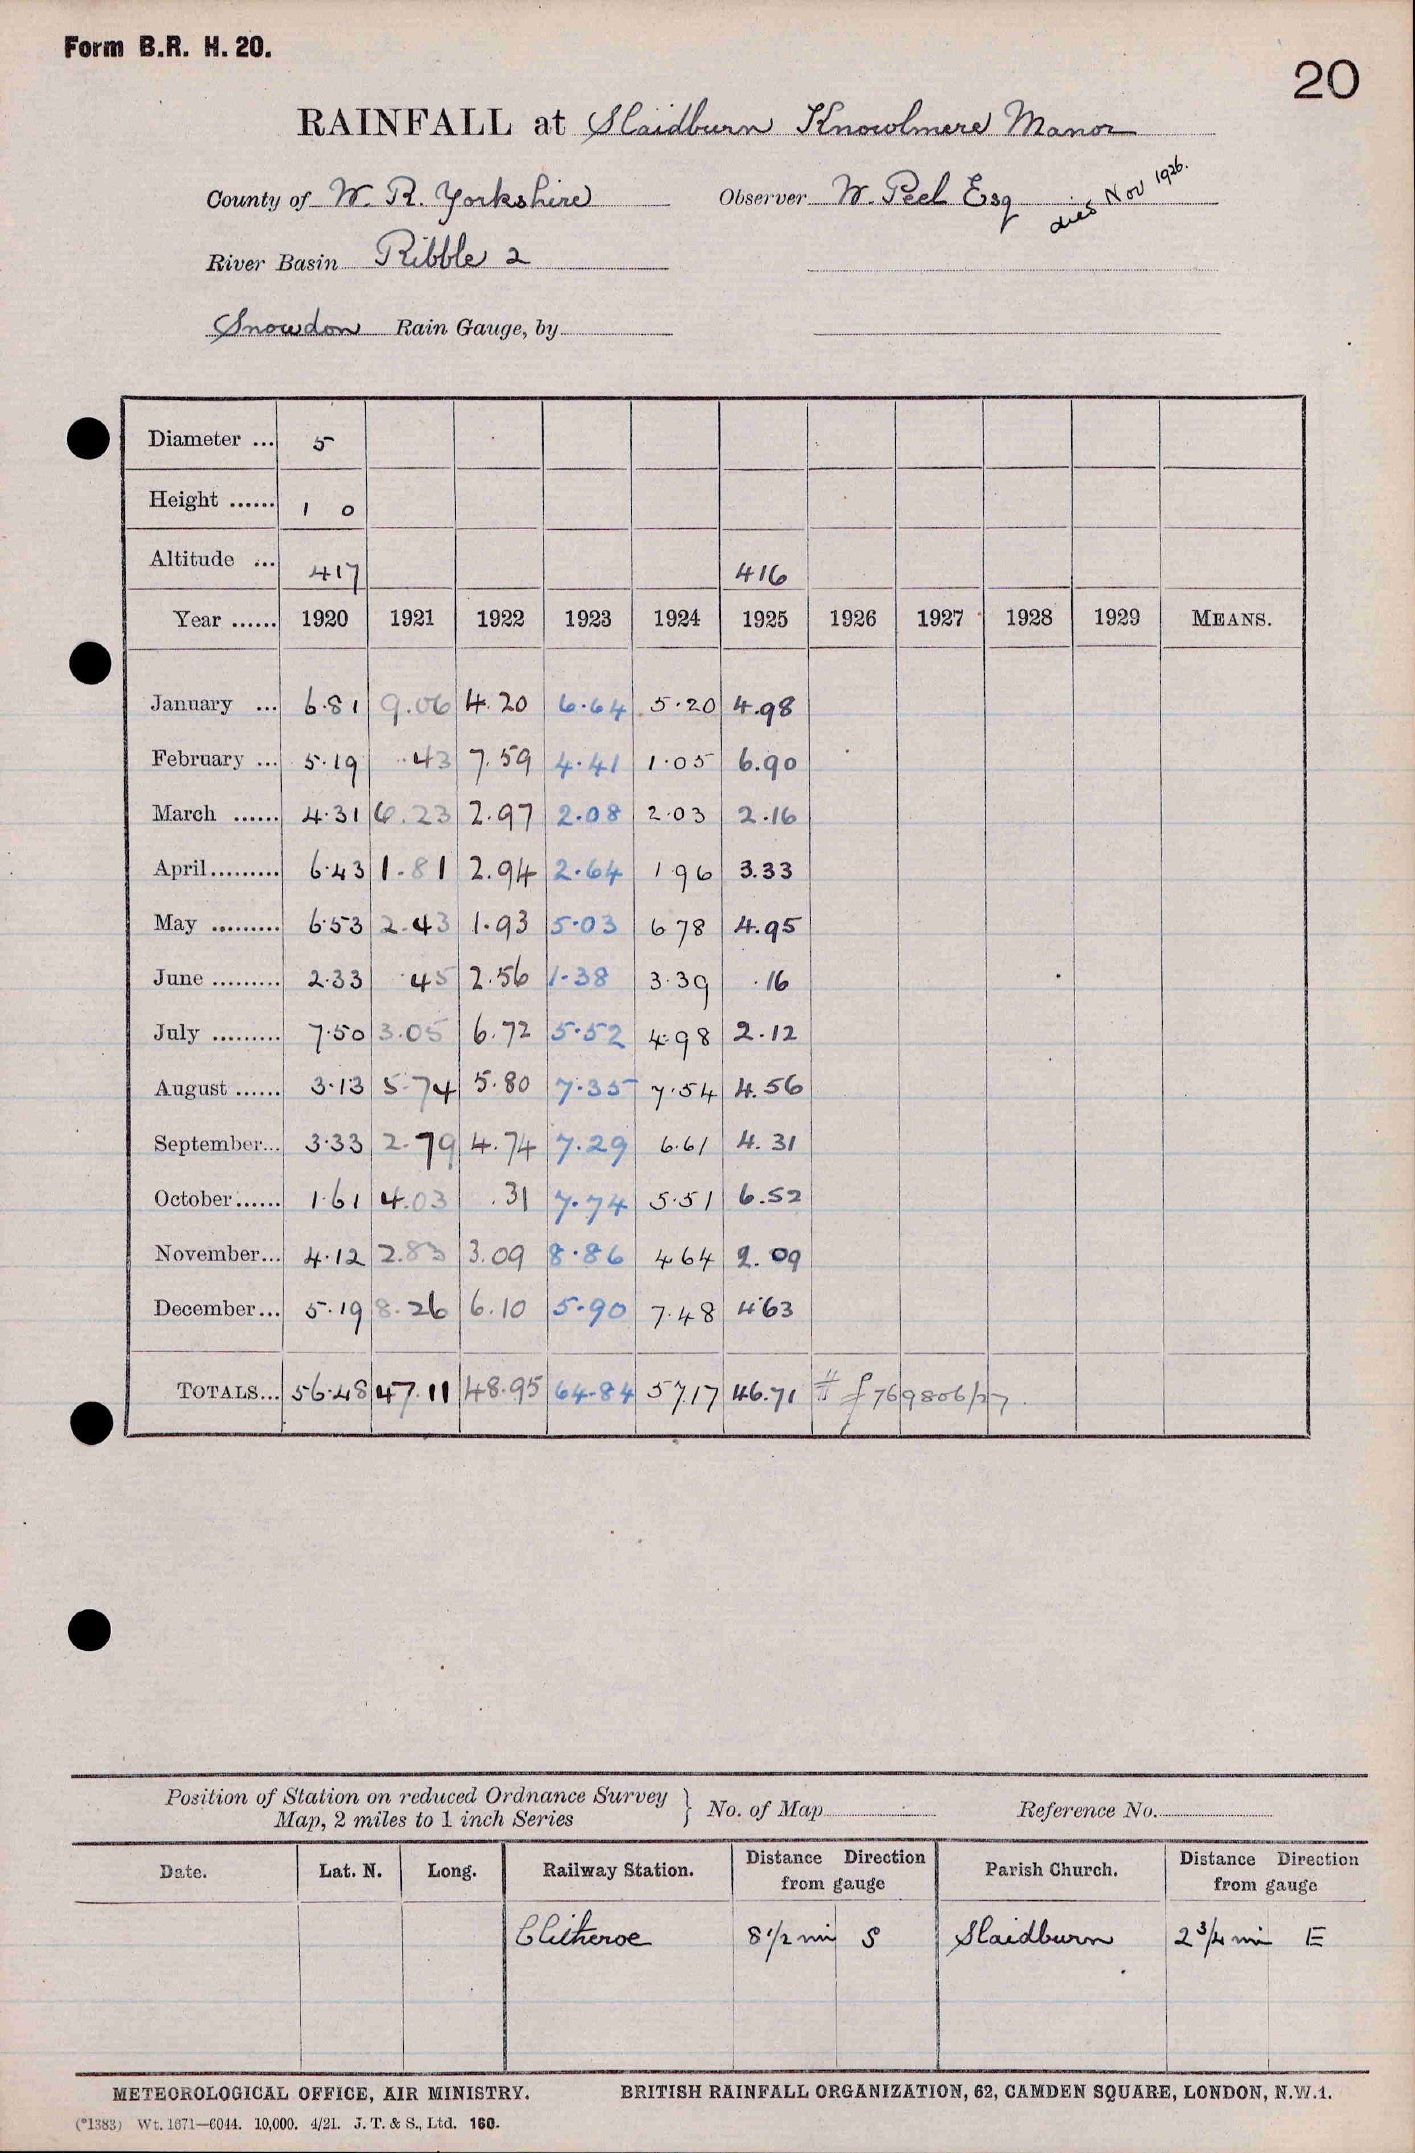 Form B.R. H. 20.
20
RAINFALL at Slaidburn Knowlmere Manor
County of W. R. Yorkshire Observer W. Peel Esq dies Nov 1926.
River Basin Ribble 2
Snowdon Rain Gauge, by
Diameter ... 5
Height ...... 1 0
Altitude ... 417 416
Year ...... 1920 1921 1922 1923 1924 1925 1926 1927 1928 1929 MEANS.
January ... 6.81 9.06 4.20 6.64 5.20 4.98
February ... 5.19 .43 7.59 4.41 1.05 6.90
March ...... 4.31 6.23 2.97 2.08 2.03 2.16
April......... 6.43 1.81 2.94 2.64 1 96 3.33
May ......... 6.53 2.43 1.93 5.03 6 78 4.95
June ......... 2.33 .45 2.56 1.38 3.39 .16
July ......... 7.50 3.05 6.72 5.52 4.98 2.12
August ...... 3.13 5.74 5.80 7.35 7.54 4.56
September... 3.33 2.79 4.74 7.29 6.61 4.31
October...... 1.61 4.03 .31 7.74 5.51 6.52
November... 4.12 2.83 3.09 8.86 4 64 2.09
December... 5.19 8.26 6.10 5.90 7.48 4.63
TOTALS... 56.48 47.11 48.95 64.84 57.17 46.71 # f 769806/27
Position of Station on reduced Ordnance Survey
Map, 2 miles to 1 inch Series } No. of Map Reference No.
Date. Lat. N. Long. Railway Station. Distance Direction from gauge Parish Church. Distance Direction from gauge
Clitheroe 8 1/2 mi S Slaidburn 2 3/4 mi E
METEOROLOGICAL OFFICE, AIR MINISTRY. BRITISH RAINFALL ORGANIZATION, 62, CAMDEN SQUARE, LONDON, N.W.1.
(*1383) Wt. 1671—6044. 10,000. 4/21. J. T. & S., Ltd. 160.